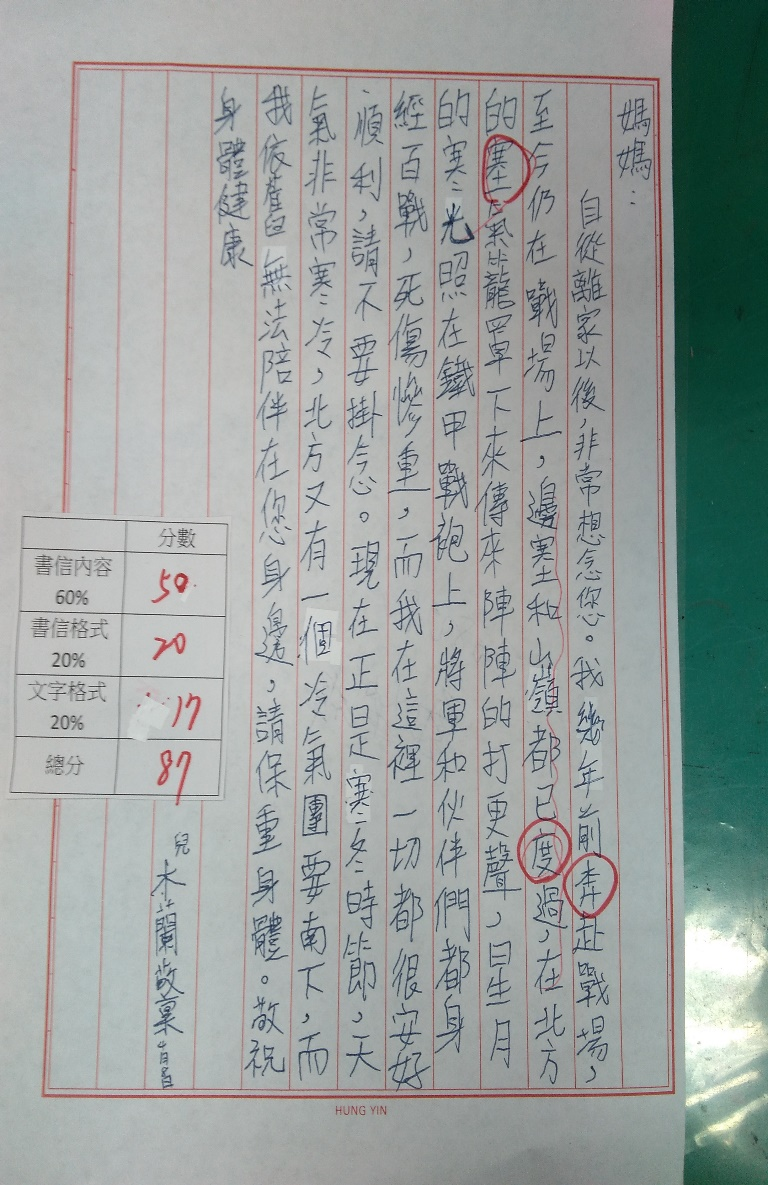 媽媽：
自從離家以後，非常想念您。我幾年前奔赴戰場，
至今仍在戰場上，邊塞和山嶺都已度過，在北方
的塞氣籠罩下來傳來陣陣的打更聲，星月
的寒光照在鐵甲戰袍上，將軍和伙伴們都身
經百戰，死傷慘重，而我在這裡一切都很安好
順利，請不要掛念。現在正是寒冬時節，天
氣非常寒冷，北方又有一個冷氣團要南下，而
我依舊無法陪伴在您身邊，請保重身體。敬祝
身體健康
兒
木蘭敬稟
分數
書信內容 60% 50
書信格式 20% 20
文字格式 20% 17
總分 87
HUNG YIN